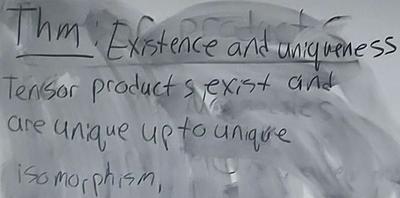 Thm: Existence and uniqueness
Tensor products exist and
are unique up to unique
isomorphism,